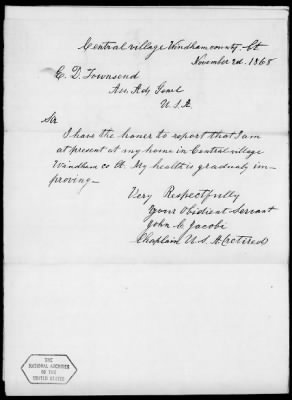 Central village Windham county Ct
November 2d. 1868
E. D. Townsend
Ass. Adj Genl
U. S. A
Sir
I have the honer to report that I am
at present at my home in Central village
Windham co Ct. My health is gradualy im-
proving_
Very Respectfully
Your Obidient Servant
John C Jacobi
Chaplain U. S. A (retired
THE
NATIONAL ARCHIVES
OF THE
UNITED STATES